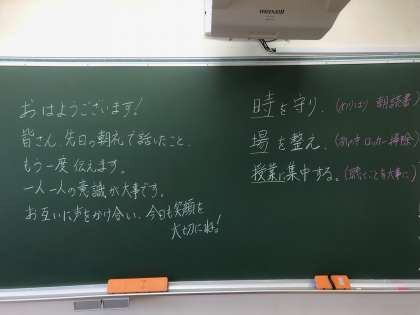 maxell
おはようございます!
皆さん、先日の朝礼で話したこと、
もう一度伝えます。
一人一人の意識が大事です。
お互いに声をかけ合い、今日も笑顔を
大切にね!
時を守り、(メリハリ 朝読書)
場を整え、(ロッカー 掃除)
授業に集中する。(聴くことを大事に)